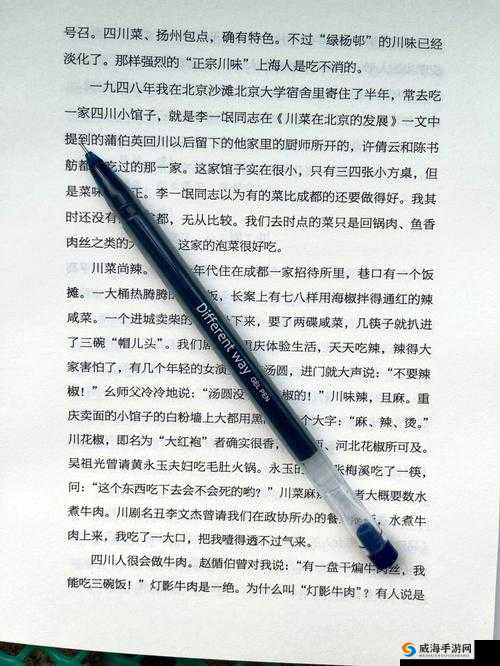 号召。四川菜、扬州包点，确有特色。不过“绿杨邨”的川味已经
淡化了。那样强烈的“正宗川味”上海人是吃不消的。
一九四八年我在北京沙滩北京大学宿舍里寄住了半年，常去吃
一家四川小馆子，就是李一氓同志在《川菜在北京的发展》一文中
提到的蒲伯英回川以后留下的他家里的厨师所开的，许倩云和陈书
舫都 吃过的那一家。这家馆子实在很小，只有三四张小方桌，但
是菜味 正。李一氓同志以为有的菜比成都的还要做得好。我其
时还没有 都，无从比较。我们去时点的菜只是回锅肉、鱼香
肉丝之类的 这家的泡菜很好吃。
川菜尚辣。 年代住在成都一家招待所里，巷口有一个饭
摊。一大桶热腾腾的 饭，长案上有七八样用海椒拌得通红的辣
咸菜。一个进城卖柴的 下来，要了两碟咸菜，几筷子就扒进
了三碗“帽儿头”。我们 重庆体验生活，天天吃辣，辣得大
家害怕了，有几个年轻的女演 汤圆，进门就大声说：“不要辣
椒！”幺师父冷冷地说：“汤圆没 椒的！”川味辣，且麻。重
庆卖面的小馆子的白粉墙上大都用黑 个大字：“麻、辣、烫。”
川花椒，即名为“大红袍”者确实很香， 西、河北花椒所可及。
吴祖光曾请黄永玉夫妇吃毛肚火锅。永玉的 张梅溪吃了一筷，
问：“这个东西吃下去会不会死的哟？”川菜麻辣 者大概要数水
煮牛肉。川剧名丑李文杰曾请我们在政协所办的餐 水煮牛
肉上来，我吃了一大口，把我噎得透不过气来。
四川人很会做牛肉。赵循伯曾对我说：“有一盘干煸牛肉丝，我
能吃三碗饭！”灯影牛肉是一绝。为什么叫“灯影牛肉”？有人说是
Different way
GEL PEN
威海手游网